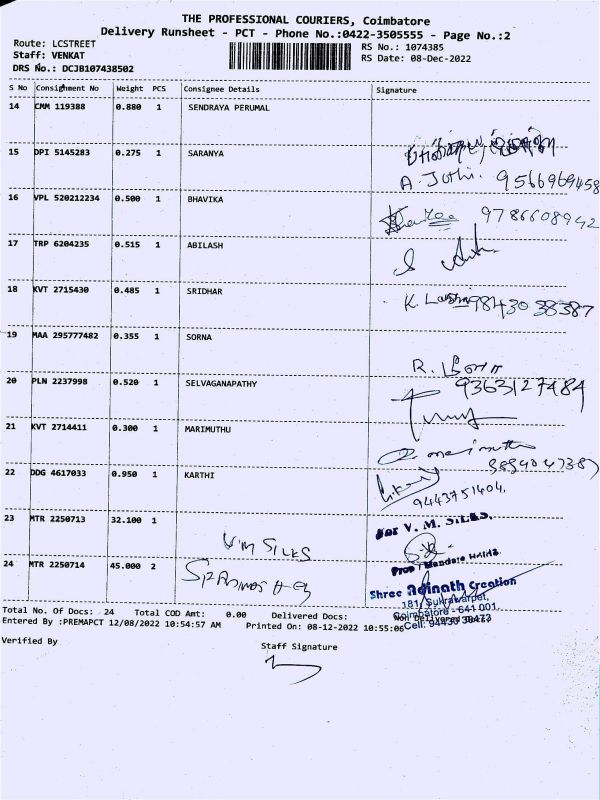 THE PROFESSIONAL COURIERS, Coimbatore
Delivery Runsheet - PCT - Phone No.:0422-3505555 - Page No.:2
Route: LCSTREET
RS No.: 1074385
Staff: VENKAT
RS Date: 08-Dec-2022
DRS No.: DCJB107438502
S No Consignment No Weight PCS Consignee Details Signature
14 CMM 119388 0.880 1 SENDRAYA PERUMAL
15 DPI 5145283 0.275 1 SARANYA
A. Jothi. 9566969458
16 VPL 520212234 0.500 1 BHAVIKA
9786608942
17 TRP 6204235 0.515 1 ABILASH
18 KVT 2715430 0.485 1 SRIDHAR
K. 9843038387
19 MAA 295777482 0.355 1 SORNA
R.
20 PLN 2237998 0.520 1 SELVAGANAPATHY
9363127484
21 KVT 2714411 0.300 1 MARIMUTHU
22 DDG 4617033 0.950 1 KARTHI
9443751404.
23 MTR 2250713 32.100 1
V.M SILKS
For V. M. SILKS,
24 MTR 2250714 45.000 2
Shree Adinath Creation
181, Sukrawarpet,
Coimbatore - 641 001.
Cell: 94430 30473
Total No. Of Docs: 24 Total COD Amt: 0.00 Delivered Docs:
Non Delivered Docs:
Entered By :PREMAPCT 12/08/2022 10:54:57 AM Printed On: 08-12-2022 10:55:06
Verified By
Staff Signature